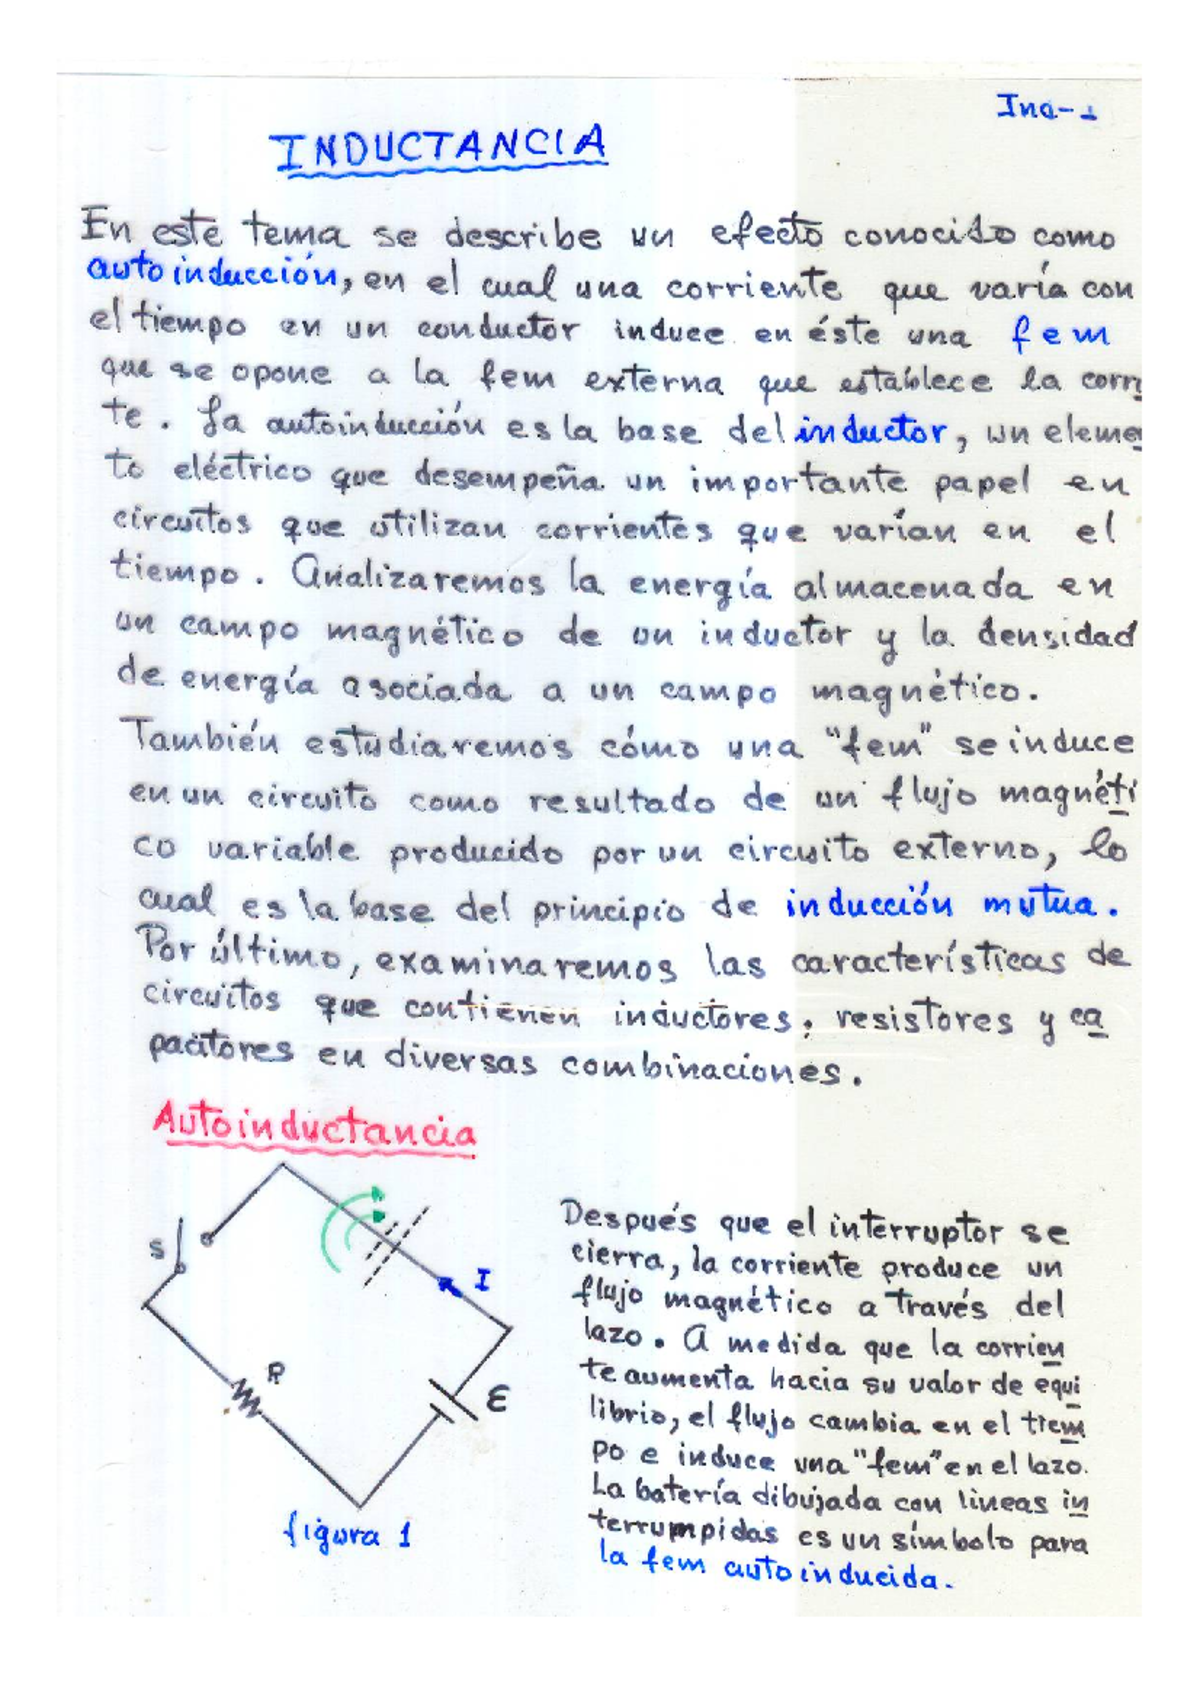 Ind-1
INDUCTANCIA
En este tema se describe un efecto conocido como
autoinducción, en el cual una corriente que varía con
el tiempo en un conductor induce en éste una fem
que se opone a la fem externa que establece la corri
te. La autoinducción es la base del inductor, un elemen
to eléctrico que desempeña un importante papel en
circuitos que utilizan corrientes que varían en el
tiempo. Analizaremos la energía almacenada en
un campo magnético de un inductor y la densidad
de energía asociada a un campo magnético.
También estudiaremos cómo una "fem" se induce
en un circuito como resultado de un flujo magnéti
co variable producido por un circuito externo, lo
cual es la base del principio de inducción mutua.
Por último, examinaremos las características de
circuitos que contienen inductores, resistores y ca
pacitores en diversas combinaciones.
Autoinductancia
S
I
R
ε
figura 1
Después que el interruptor se
cierra, la corriente produce un
flujo magnético a través del
lazo. A medida que la corrien
te aumenta hacia su valor de equi
librio, el flujo cambia en el tiem
po e induce una "fem" en el lazo.
La batería dibujada con líneas in
terrumpidas es un símbolo para
la fem autoinducida.